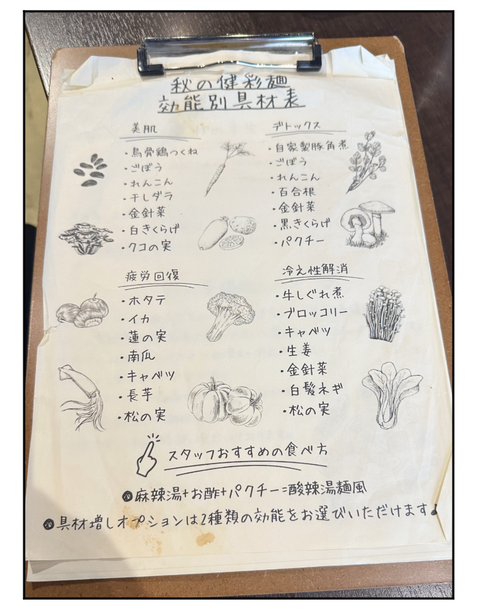 秋の健彩麺
効能別具材表
美肌
・烏骨鶏つくね
・ごぼう
・れんこん
・干しダラ
・金針菜
・白きくらげ
・クコの実
デトックス
・自家製豚角煮
・ごぼう
・れんこん
・百合根
・金針菜
・黒きくらげ
・パクチー
疲労回復
・ホタテ
・イカ
・蓮の実
・南瓜
・キャベツ
・長芋
・松の実
冷え性解消
・牛しぐれ煮
・ブロッコリー
・キャベツ
・生姜
・金針菜
・白髪ネギ
・松の実
スタッフおすすめの食べ方
麻辣湯+お酢+パクチー=酸辣湯麺風
具材増しオプションは2種類の効能をお選びいただけます